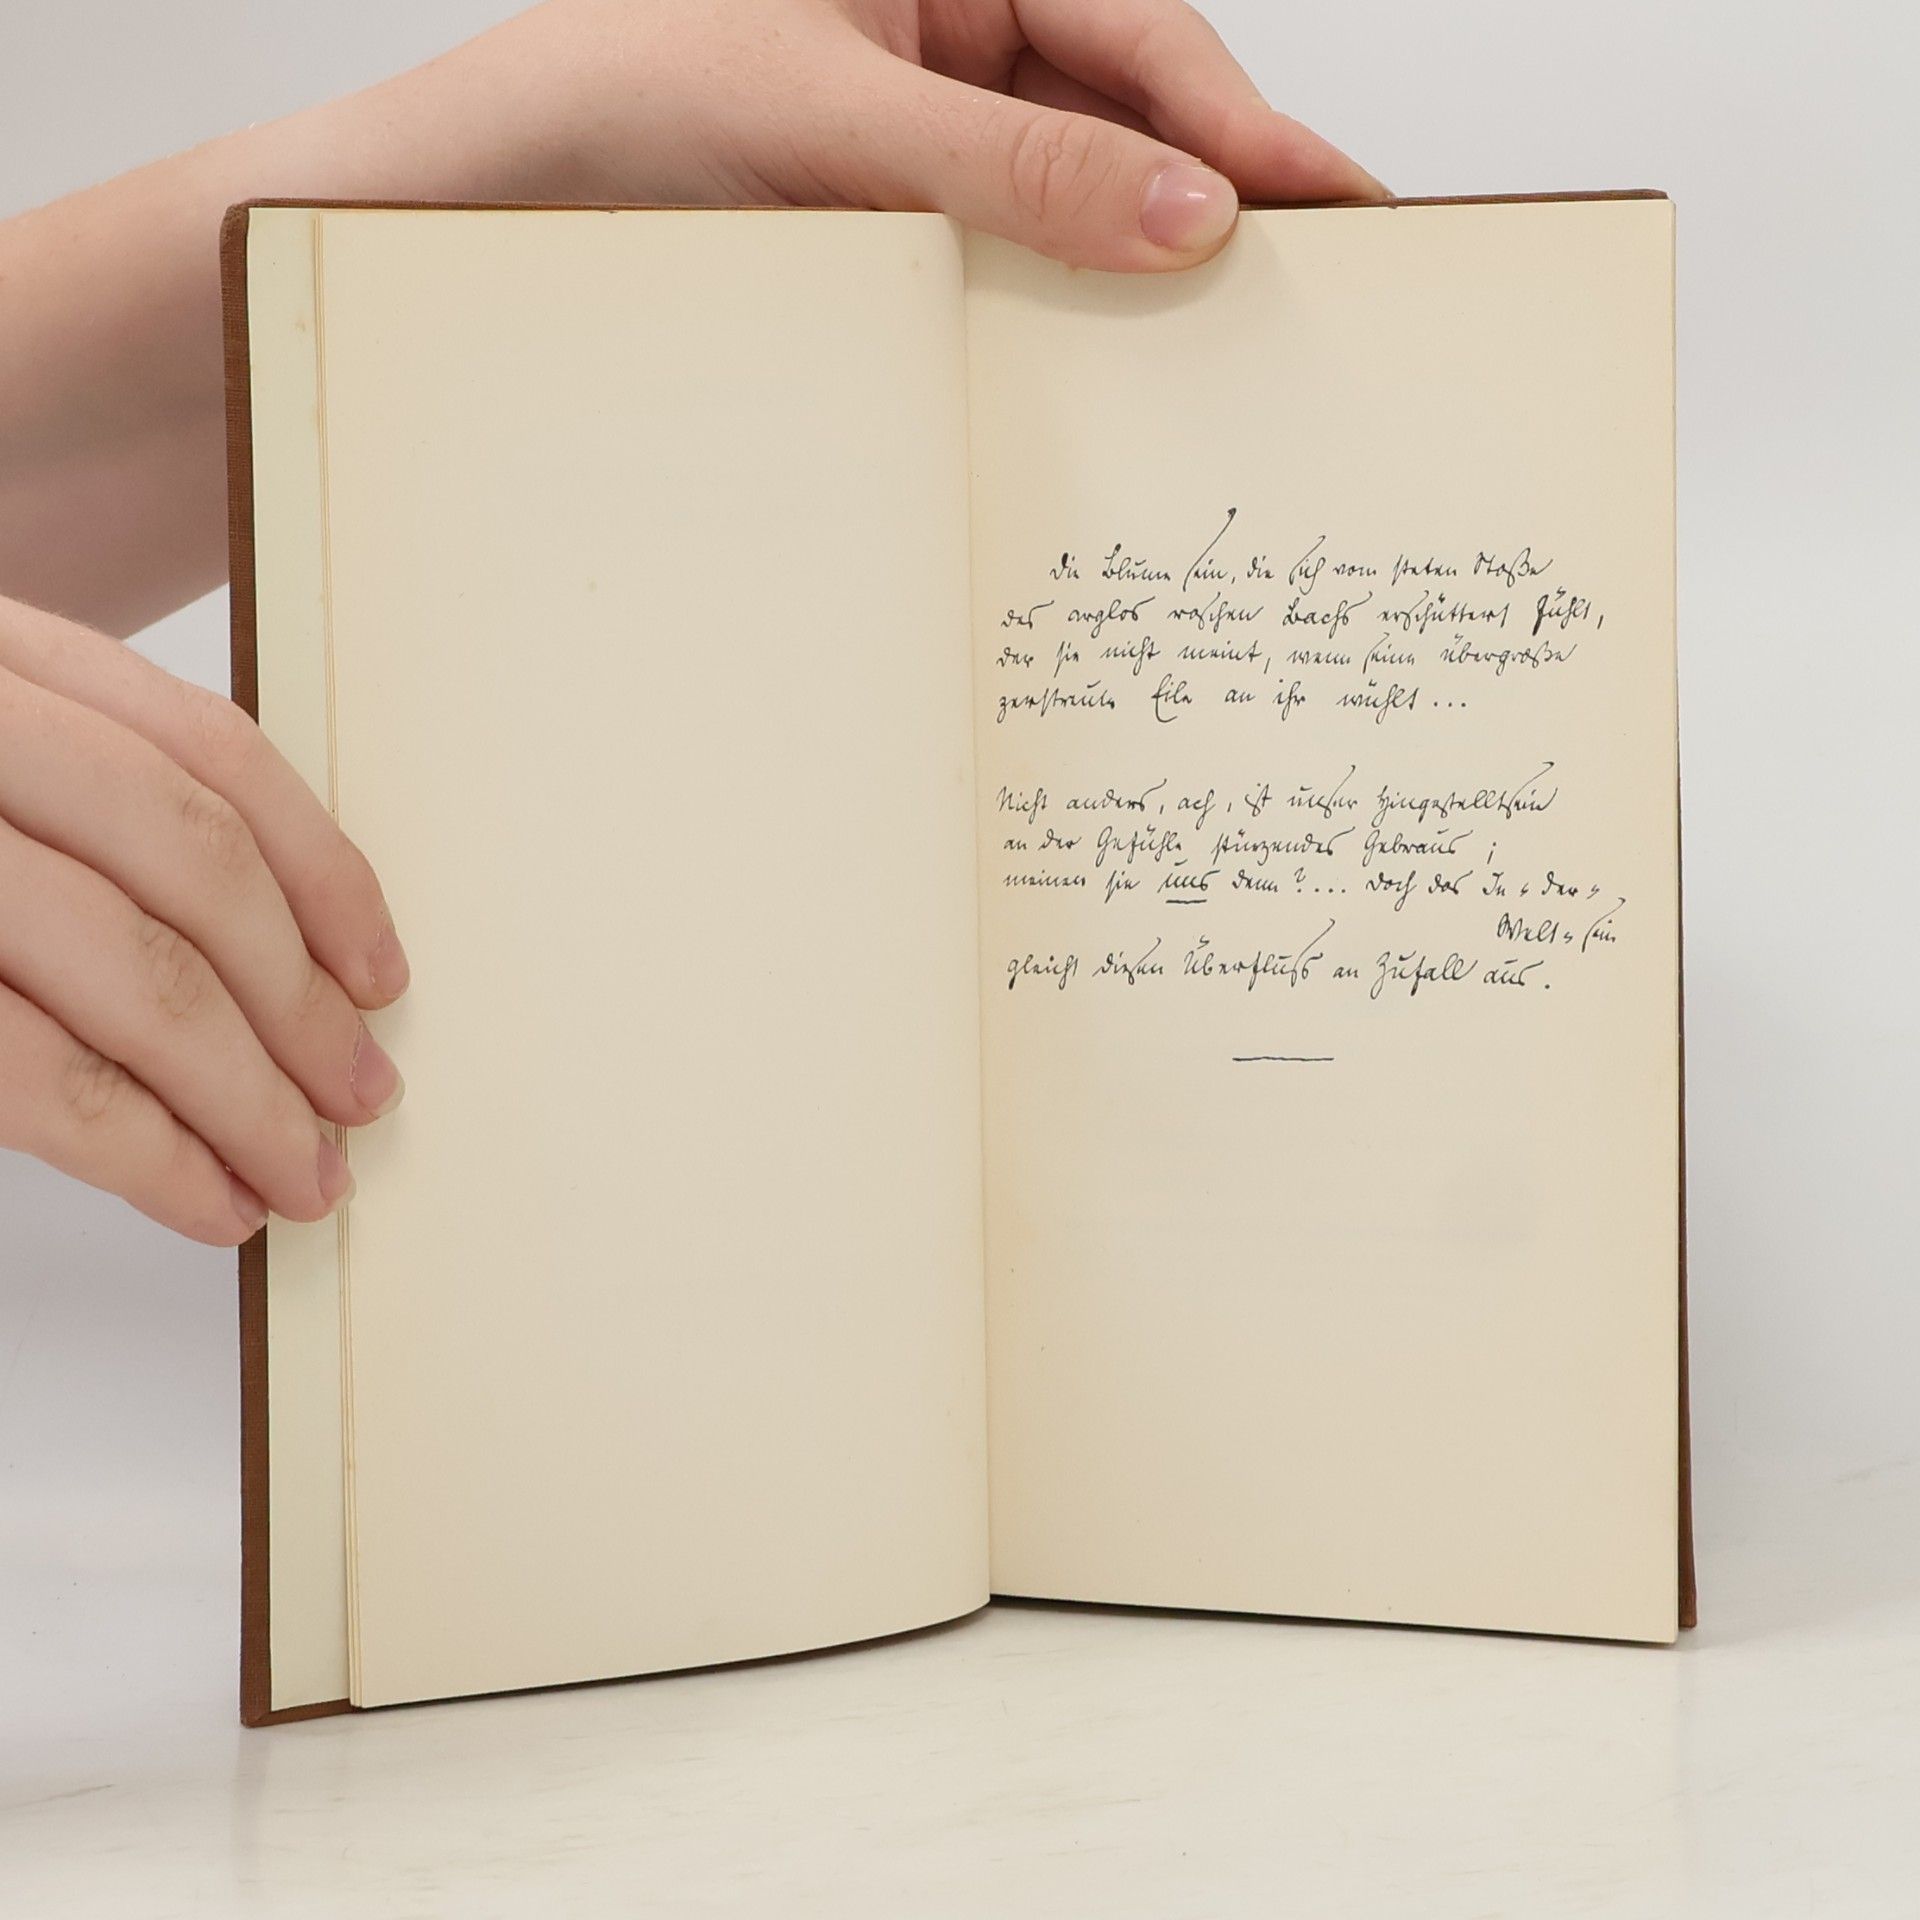 Die Blume sein, die sich vom steten Stoße
des arglos raschen Bachs erschüttert fühlt,
der sie nicht meint, wenn seine übergroße
zerstreute Eile an ihr wühlt ...
Nicht anders, ach, ist unser Hingestelltsein
an der Gefühle stürzendes Gebraus ;
meinen sie uns denn ? ... Doch das In - der -
Welt - sein
gleicht diesen Überfluss an Zufall aus .